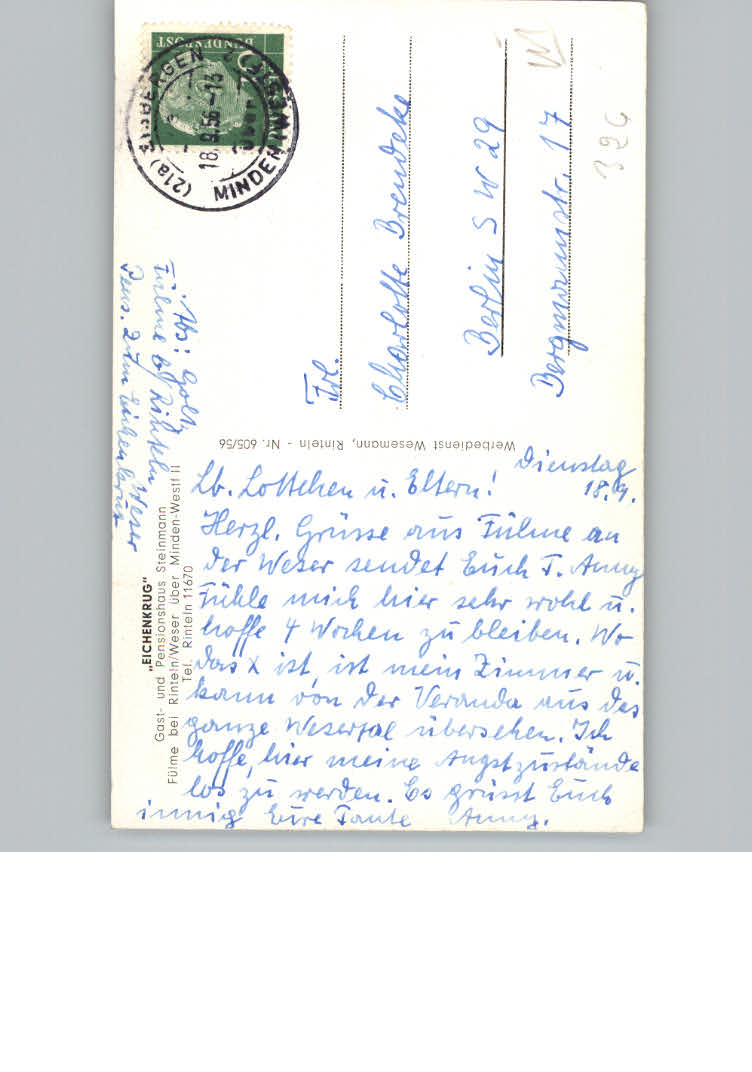 Dienstag
18.9.
Lb. Lottchen u. Eltern!
Herzl. Grüsse aus Fülme an
der Weser sendet Euch T. Anny
Fühle mich hier sehr wohl u.
hoffe 4 Wochen zu bleiben. Wo
das X ist, ist mein Zimmer u.
kann von der Veranda aus das
ganze Wesertal übersehen. Ich
hoffe, hier meine Angstzustände
los zu werden. Es grüsst Euch
innig Eure Tante Anny.
Abs: Golt,
Fülme b/ Rinteln Weser
Pens. Zum Eichenkrug
"EICHENKRUG"
Gast- und Pensionshaus Steinmann
Fülme bei Rinteln/Weser über Minden-Westf II
Tel. Rinteln 11670
Werbedienst Wesemann, Rinteln - Nr. 605/56
Frl.
Charlotte Brendeke
Berlin SW 29
Bergmannstr. 17
BUNDESPOST
(21a) EISBERGEN
18.9.56-16
über
MINDEN (WESTF)